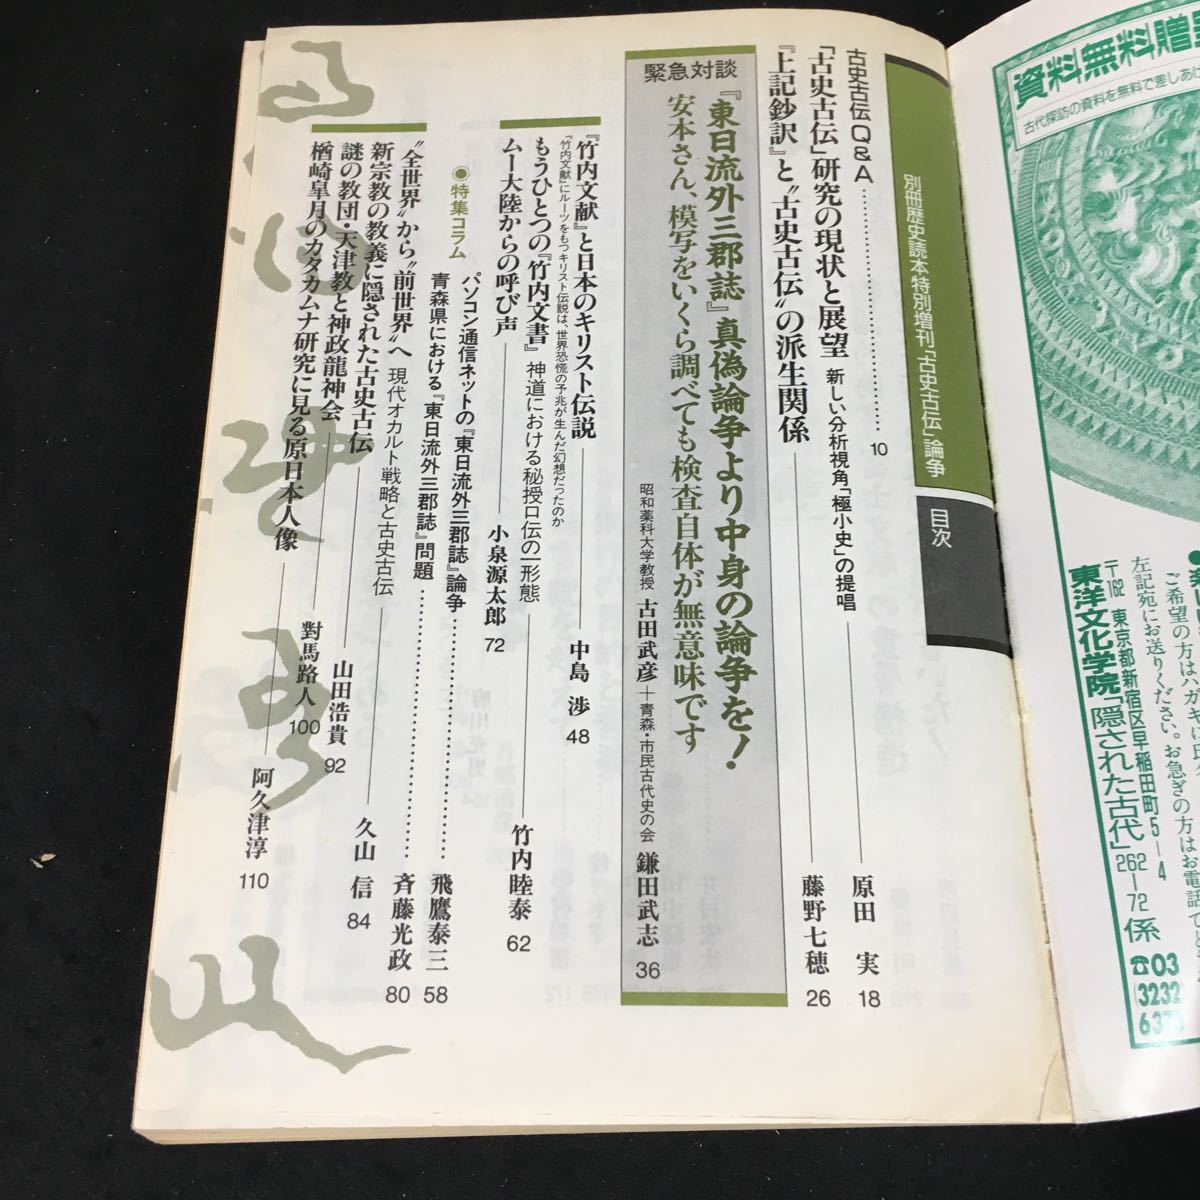 別冊歴史読本特別増刊「古史古伝」論争
目次
古史古伝Q&A………10
「古史古伝」研究の現状と展望 新しい分析視角「極小史」の提唱――原田 実 18
『上記鈔訳』と〝古史古伝〟の派生関係――藤野七穂 26
緊急対談
『東日流外三郡誌』真偽論争より中身の論争を!
安本さん、模写をいくら調べても検査自体が無意味です
昭和薬科大学教授 古田武彦+青森・市民古代史の会 鎌田武志 36
『竹内文献』と日本のキリスト伝説――中島 渉 48
『竹内文献』にルーツをもつキリスト伝説は、世界恐慌の予兆が生んだ幻想だったのか
もうひとつの『竹内文書』 神道における秘授口伝の一形態――竹内睦泰 62
ムー大陸からの呼び声――小泉源太郎 72
●特集コラム
パソコン通信ネットの『東日流外三郡誌』論争………飛鷹泰三 58
青森県における『東日流外三郡誌』問題………斉藤光政 80
〝全世界〟から〝前世界〟へ 現代オカルト戦略と古史古伝――久山 信 84
新宗教の教義に隠された古史古伝――山田浩貴 92
謎の教団・天津教と神政龍神会――對馬路人 100
楢崎皐月のカタカムナ研究に見る原日本人像――阿久津淳 110
資料無料贈
古代探訪の資料を無料で差しあげ
ご希望の方はハガキに
左記宛にお送りください。お急ぎの方はお電話で
〒162 東京都新宿区早稲田町5-4
東洋文化学院「隠された古代」262-72係
☎03
(3232)